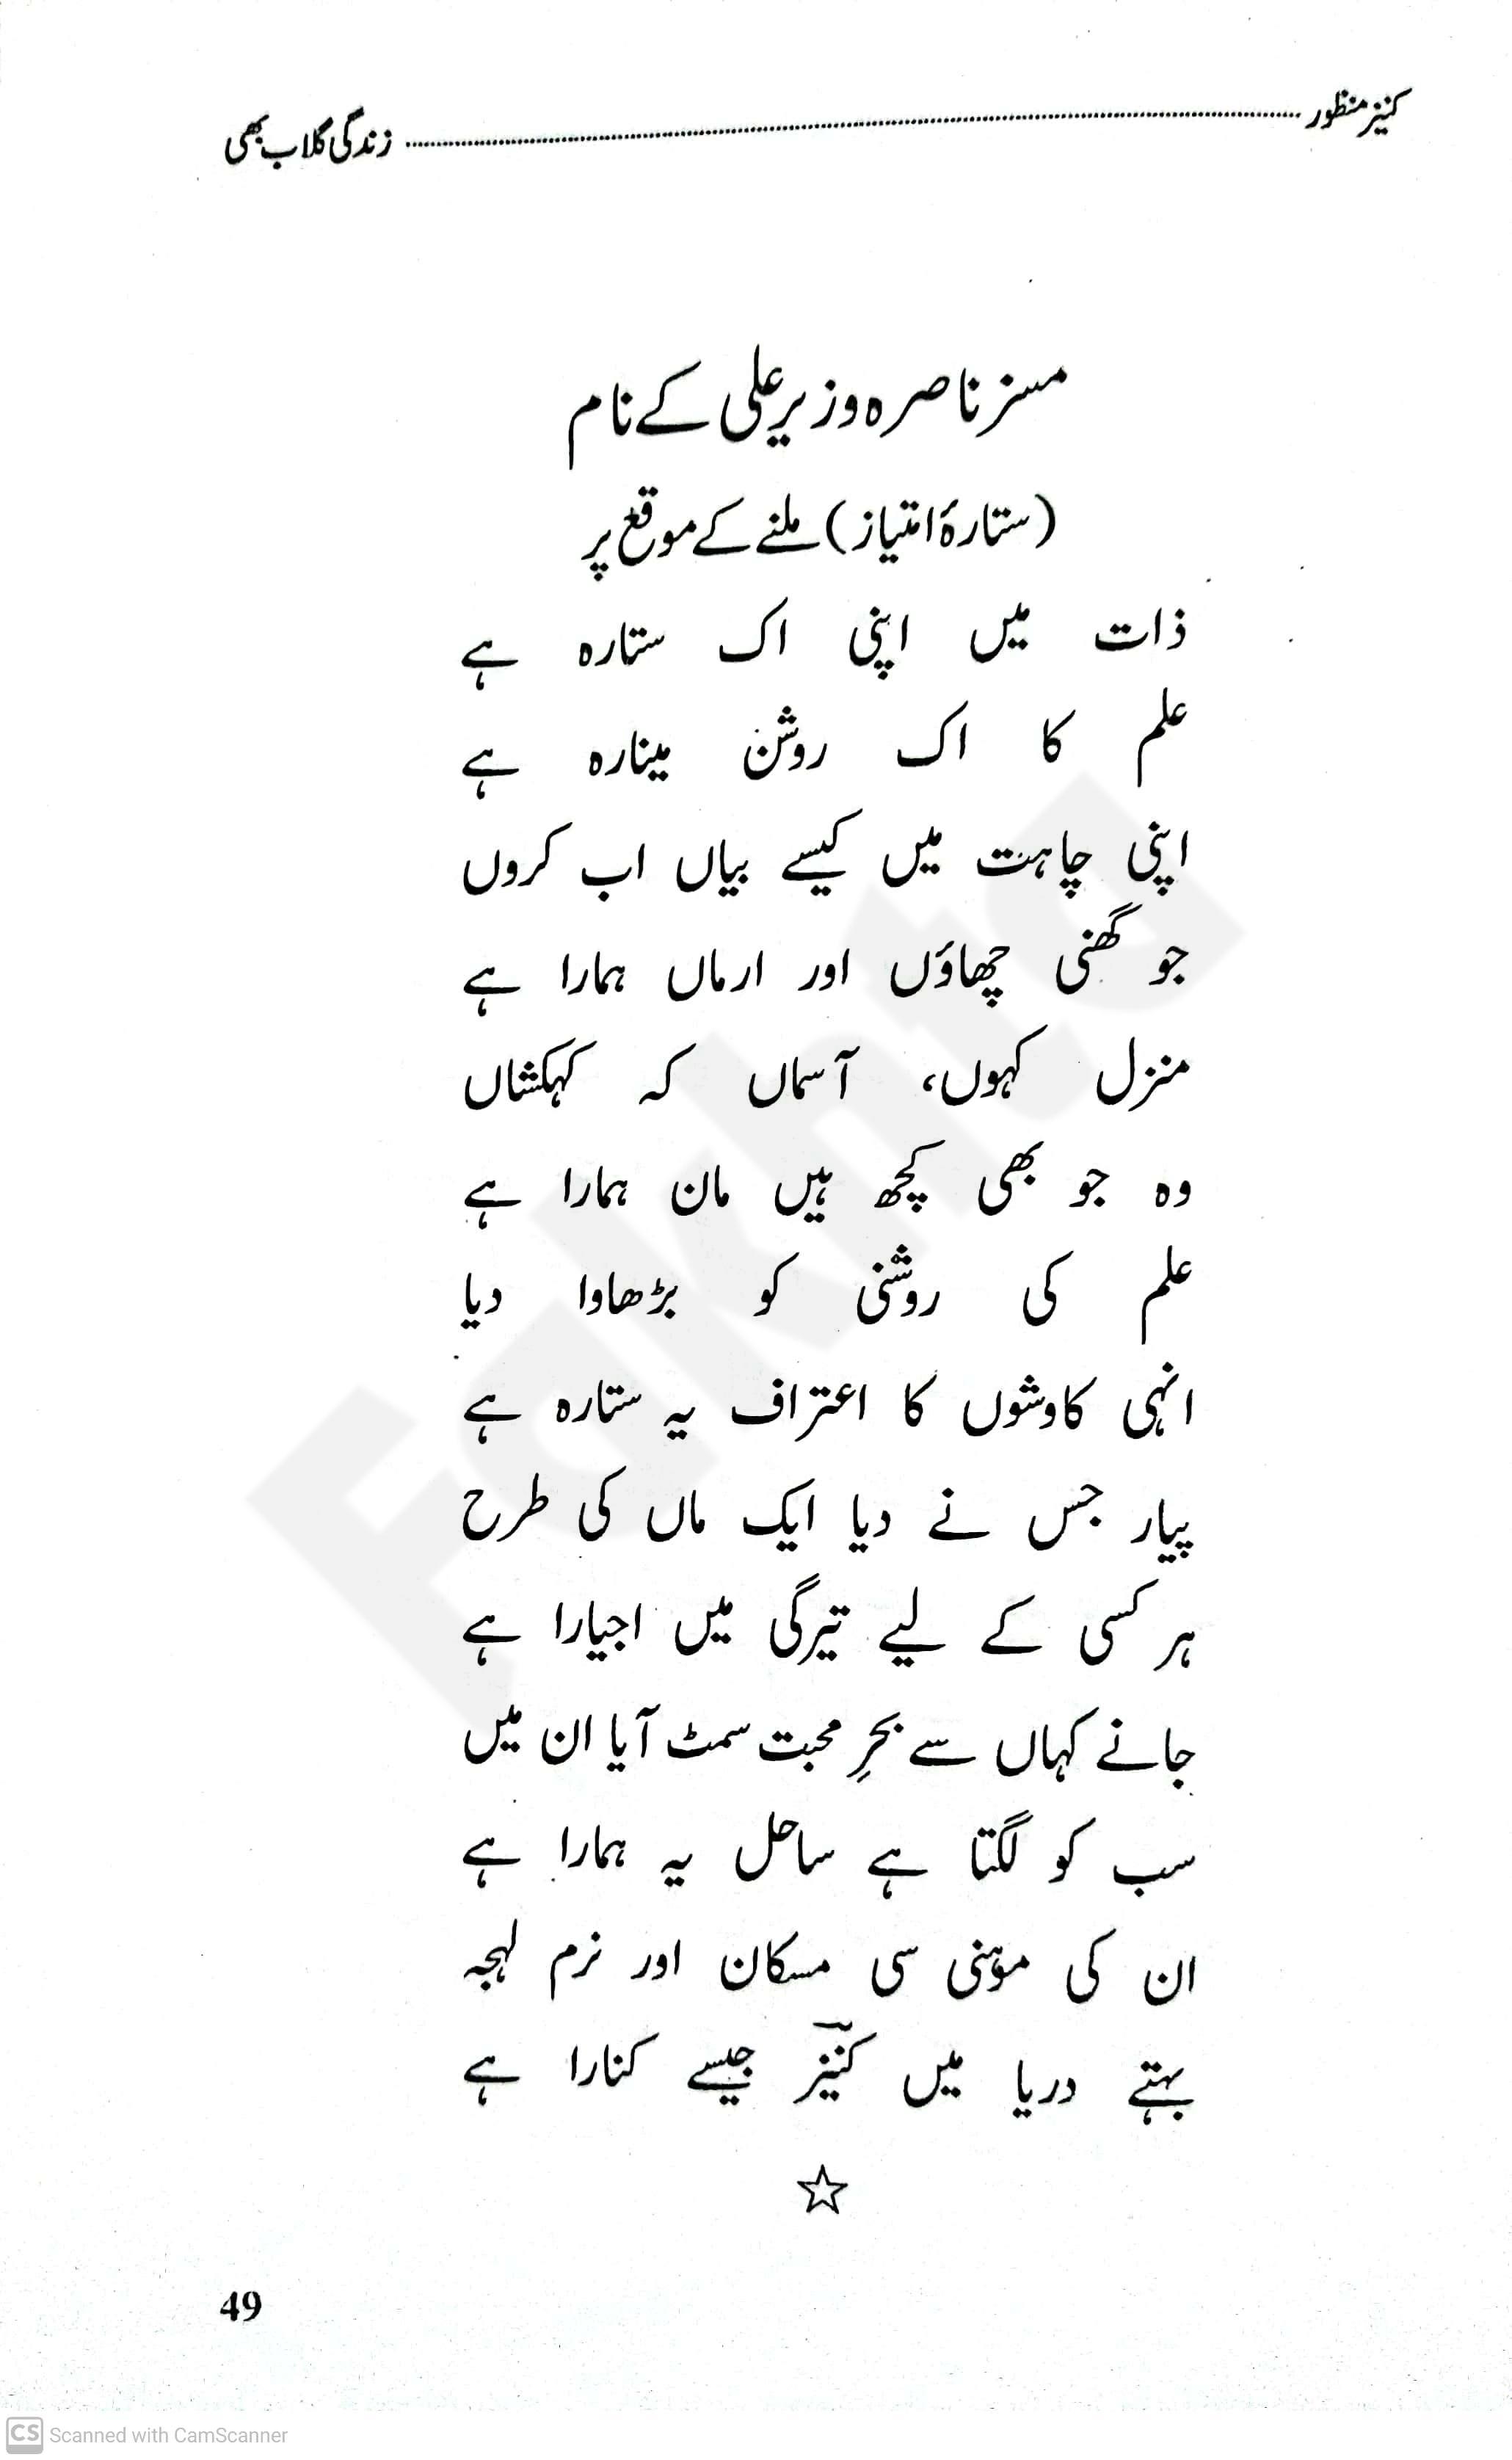 کنیز منظور ........ زندگی گلاب بھی
مسز ناصرہ وزیر علی کے نام
(ستارۂ امتیاز) ملنے کے موقع پر
ذات میں اپنی اک ستارہ ہے
علم کا اک روشن مینارہ ہے
اپنی چاہت میں کیسے بیاں اب کروں
جو گھنی چھاؤں اور ارماں ہمارا ہے
منزل کہوں، آسماں کہ کہکشاں
وہ جو بھی کچھ ہیں مان ہمارا ہے
علم کی روشنی کو بڑھاوا دیا
انہی کاوشوں کا اعتراف یہ ستارہ ہے
پیار جس نے دیا ایک ماں کی طرح
ہر کسی کے لیے تیرگی میں اجیارا ہے
جانے کہاں سے بحرِ محبت سمٹ آیا ان میں
سب کو لگتا ہے ساحل یہ ہمارا ہے
ان کی موہنی سی مسکان اور نرم لہجہ
بہتے دریا میں کنیزؔ جیسے کنارا ہے
☆
49
Fakhta
CS Scanned with CamScanner